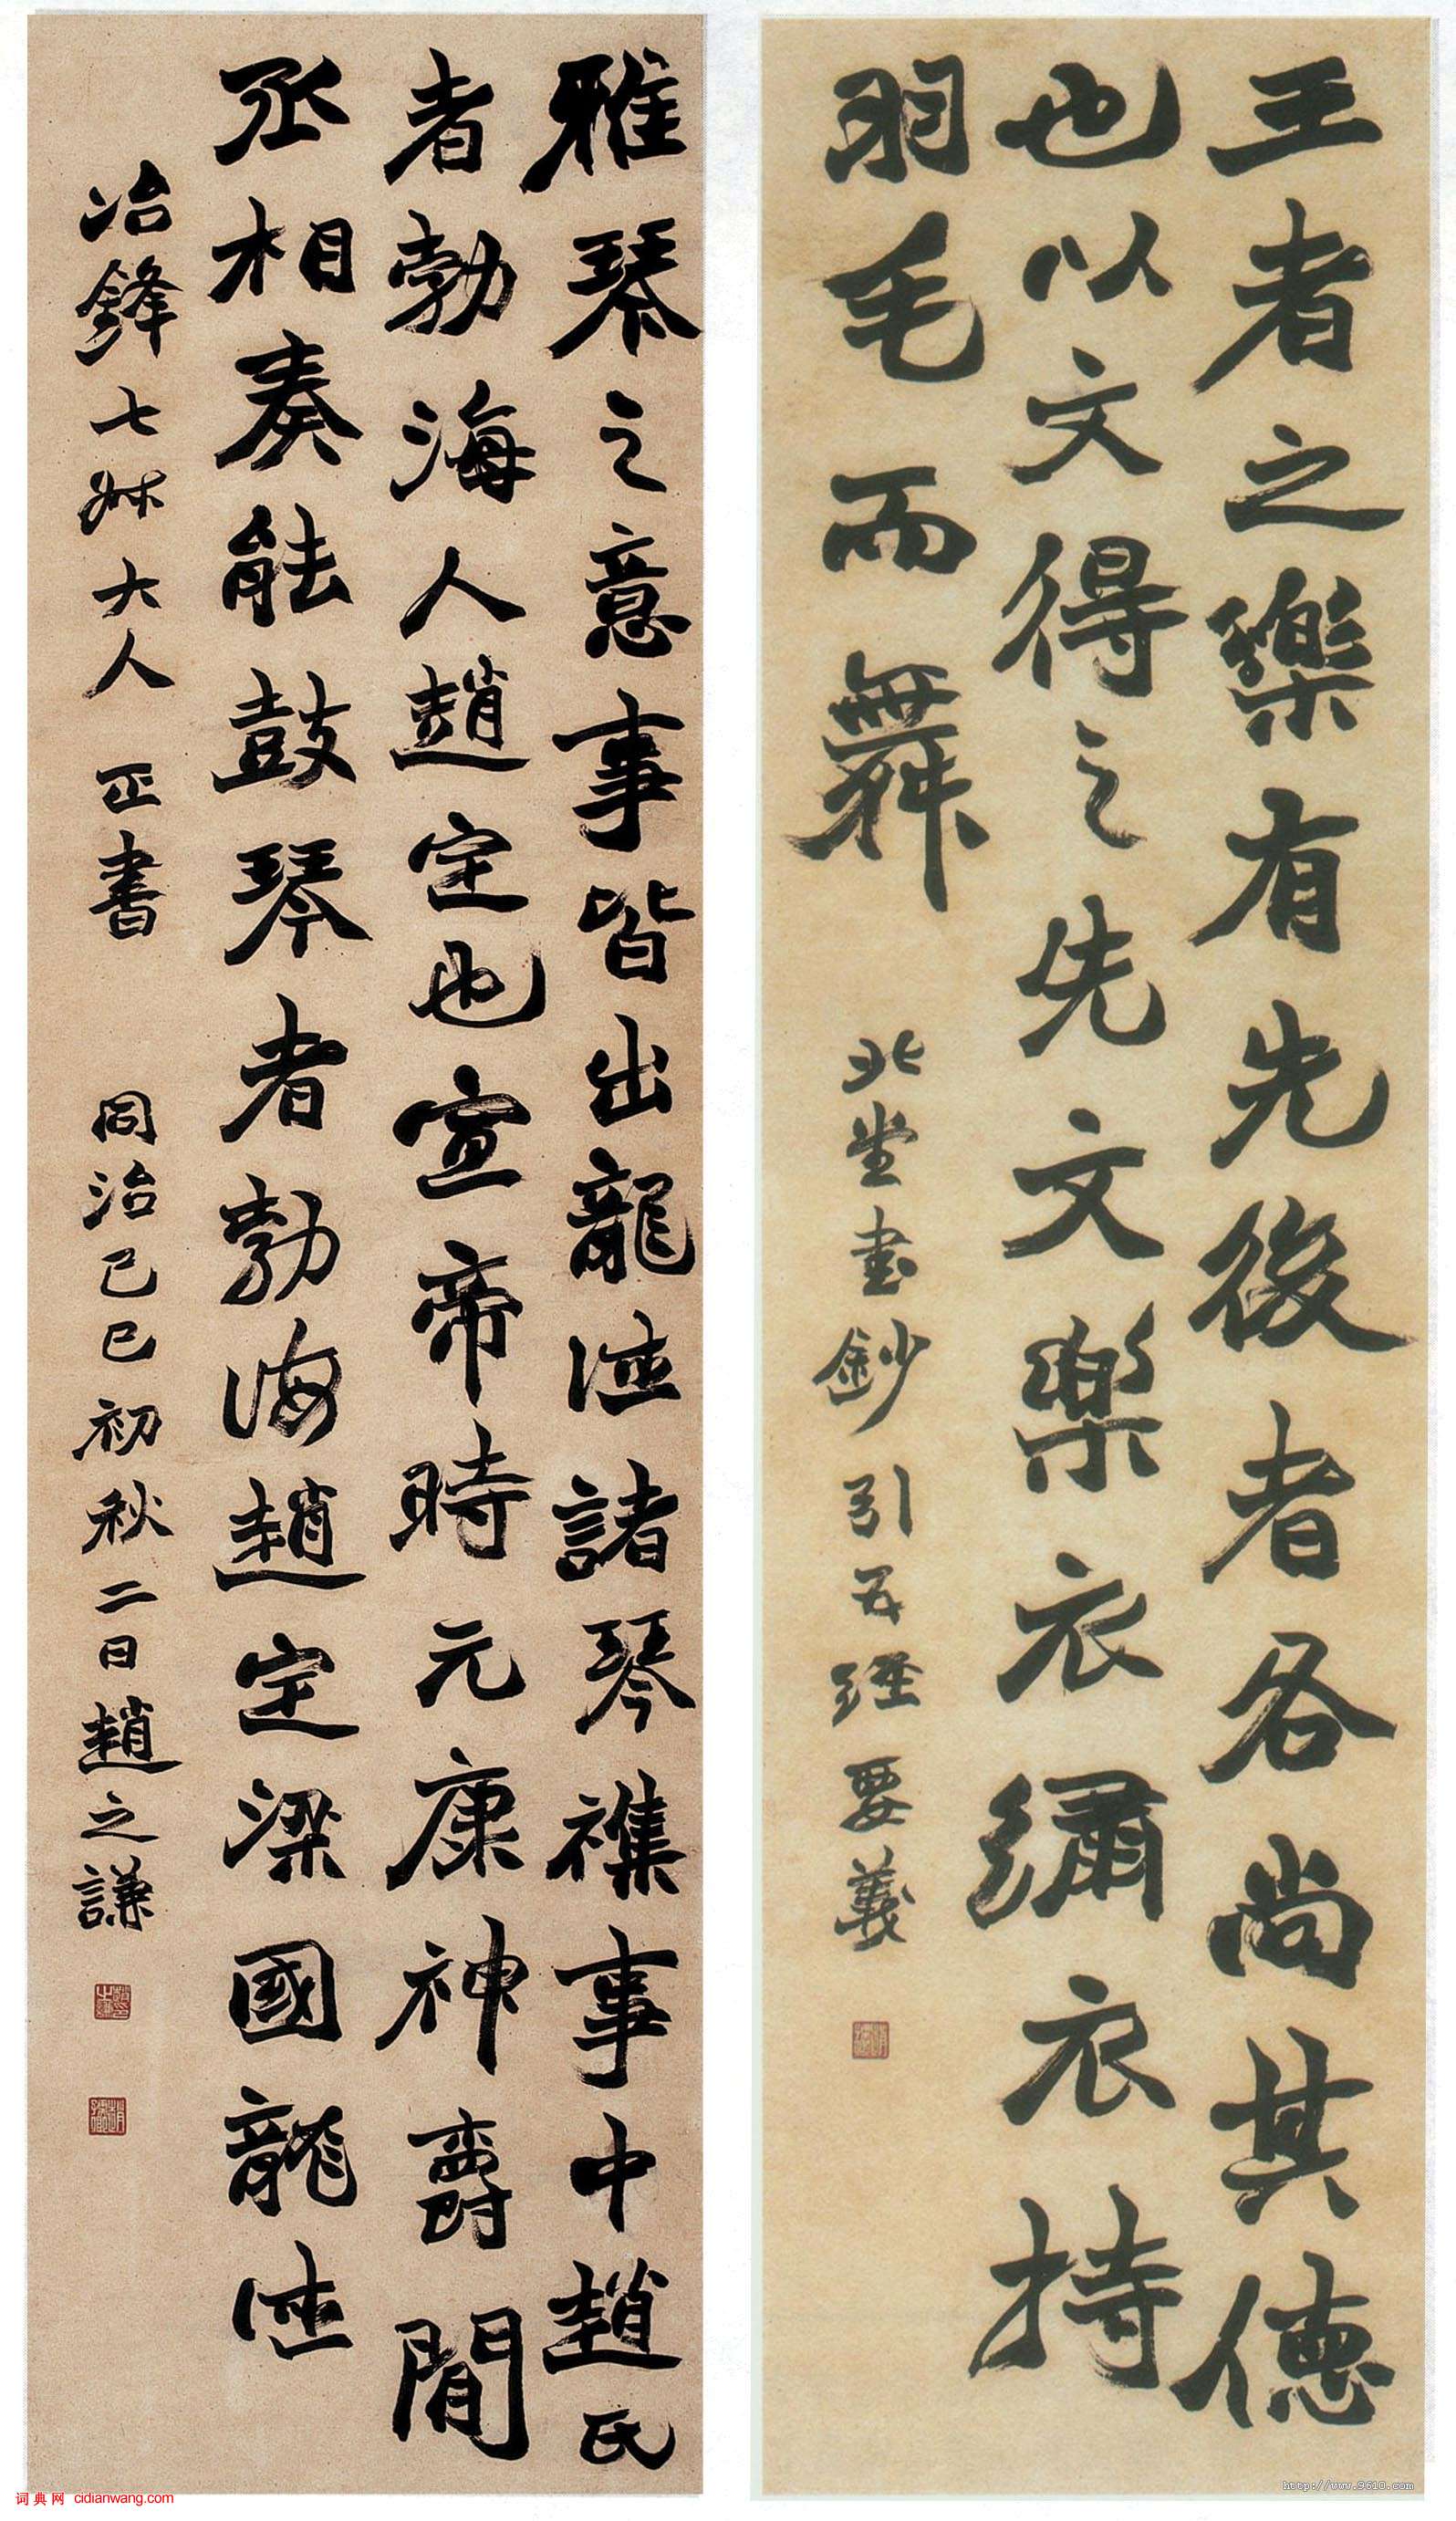 王者之樂有先後者各尚其德
也以文得之先文樂衣繡衣持
羽毛而舞
北堂書鈔引五經要義
雅琴之意事皆出龍德諸琴襍事中趙氏
者勃海人趙定也宣帝時元康神爵間
丞相奏能鼓琴者勃海趙定梁國龍德
冶鋒七姊大人 正書 同治己巳初秋二日趙之謙
词典网 cidianwang.com
http://www.9610.com